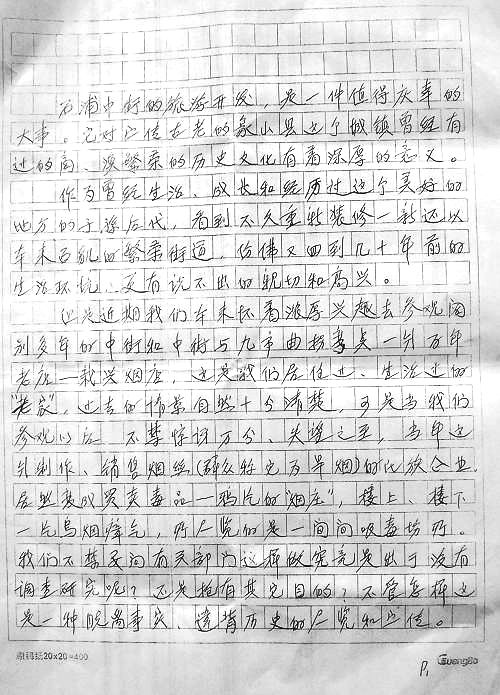 石浦中街的旅游开发，是一件值得庆幸的
大事。它对宣传古老的象山县这个城镇曾经有
过的商、渔繁荣的历史文化有着深厚的意义。
作为曾经生活、成长和经历过这个美好的
地方的子孙后代，看到不久重新装修一新还以
车来的繁荣街道，仿佛又回到几十年前的
生活环境，更有说不出的亲切和高兴。
近期我们车来怀着浓厚兴趣去参观阔
别多年的中街和中街与九市曲拐弯点一升百年
老店—栽兴烟店，这是我们居住过、生活过的
"老家"，过去的情景自然十分清楚，可是当我们
参观以后 不禁惊讶万分、失望之至，当年这
制作、销售烟丝(群众称它为旱烟)的民族企业，
居然变成买卖毒品—鸦片的"烟店"，楼上、楼下
一片乌烟瘴气，所展览的是一间间吸毒场所。
我们不禁要问有关部门这样做究竟是出于没有
调查研究呢？还是抱有其它目的？不管怎样这
是一种脱离事实、违背历史的展览和宣传。
原稿纸20×20=400
GuangBo
P1